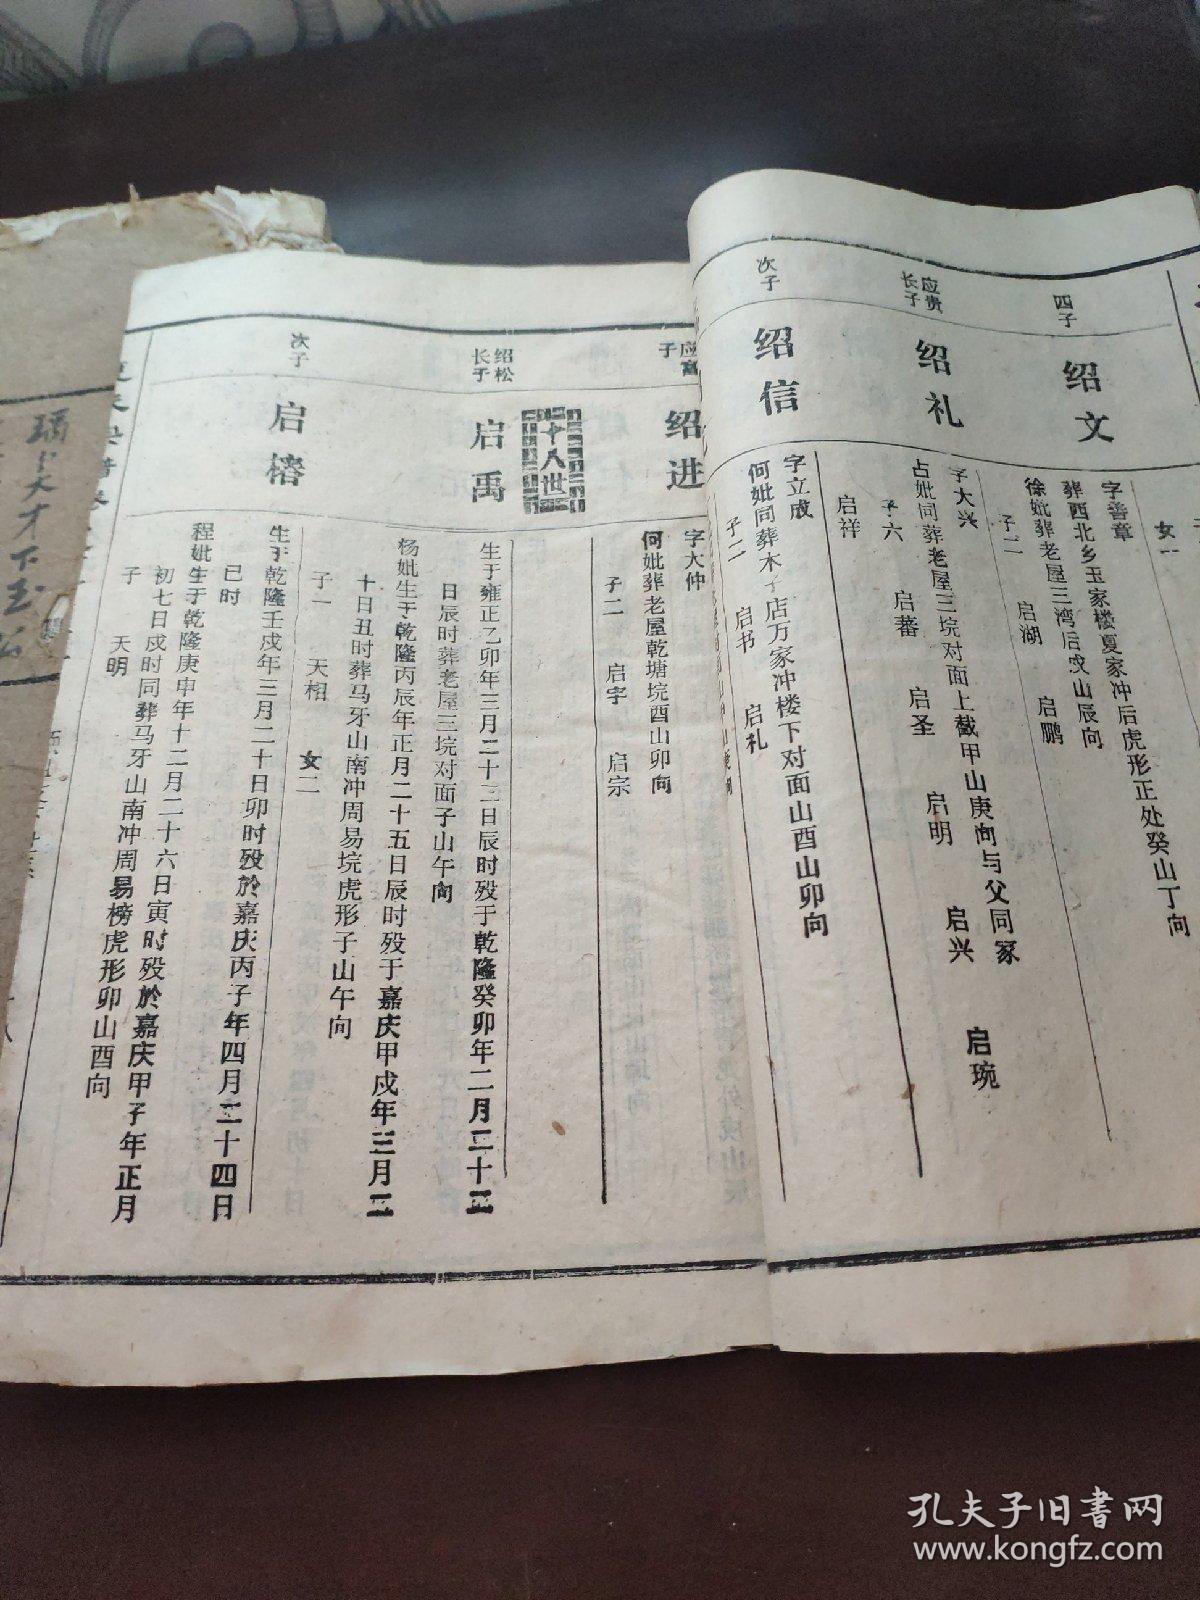 女一
四子
绍文
字善章
葬西北乡玉家楼夏家冲后虎形正处癸山丁向
徐妣葬老屋三湾后戌山辰向
子二 启湖 启鹏
应贵
长子
绍礼
字大兴
占妣同葬老屋三垸对面上截甲山庚向与父同冢
子六 启蕃 启圣 启明 启兴 启琬
启祥
次子
绍信
字立成
何妣同葬木子店万家冲楼下对面山酉山卯向
子二 启书 启礼
应富
子
绍进
字大仲
何妣葬老屋乾塘垸酉山卯向
子二 启宇 启宗
十八世
绍松
长子
启禹
生于雍正乙卯年三月二十三日辰时殁于乾隆癸卯年二月二十三
日辰时葬老屋三垸对面子山午向
杨妣生于乾隆丙辰年正月二十五日辰时殁于嘉庆甲戌年三月二
十日丑时葬马牙山南冲周易垸虎形子山午向
子一 天相 女二
次子
启椿
生于乾隆壬戌年三月二十日卯时殁於嘉庆丙子年四月二十四日
巳时
程妣生于乾隆庚申年十二月二十六日寅时殁於嘉庆甲子年正月
初七日戌时同葬马牙山南冲周易榜虎形卯山酉向
子 天明
孔夫子旧书网
www.kongfz.com